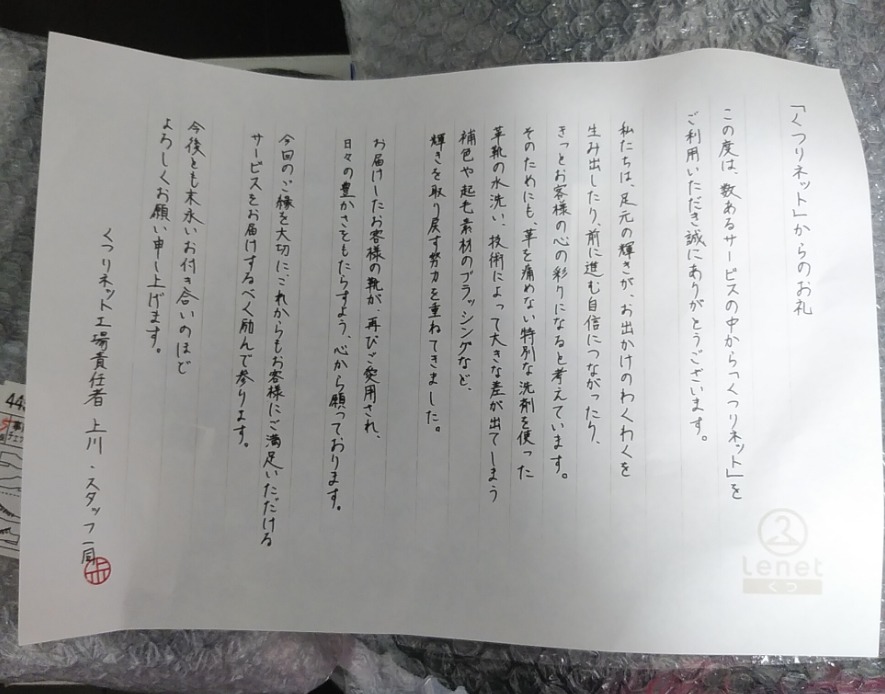 「くつリネット」からのお礼
この度は、数あるサービスの中から「くつリネット」を
ご利用いただき誠にありがとうございます。
私たちは、足元の輝きが、お出かけのわくわくを
生み出したり、前に進む自信につながったり、
きっとお客様の心の彩りになると考えています。
そのためにも、革を痛めない特別な洗剤を使った
革靴の水洗い、技術によって大きな差が出てしまう
補色や起毛素材のブラッシングなど、
輝きを取り戻す努力を重ねてきました。
お届けしたお客様の靴が、再びご愛用され、
日々の豊かさをもたらすよう、心から願っております。
今回のご縁を大切に、これからもお客様にご満足いただける
サービスをお届けするべく励んで参ります。
今後とも末永いお付き合いのほど
よろしくお願い申し上げます。
くつリネット工場責任者 上川・スタッフ一同
Lenet
くつ
44